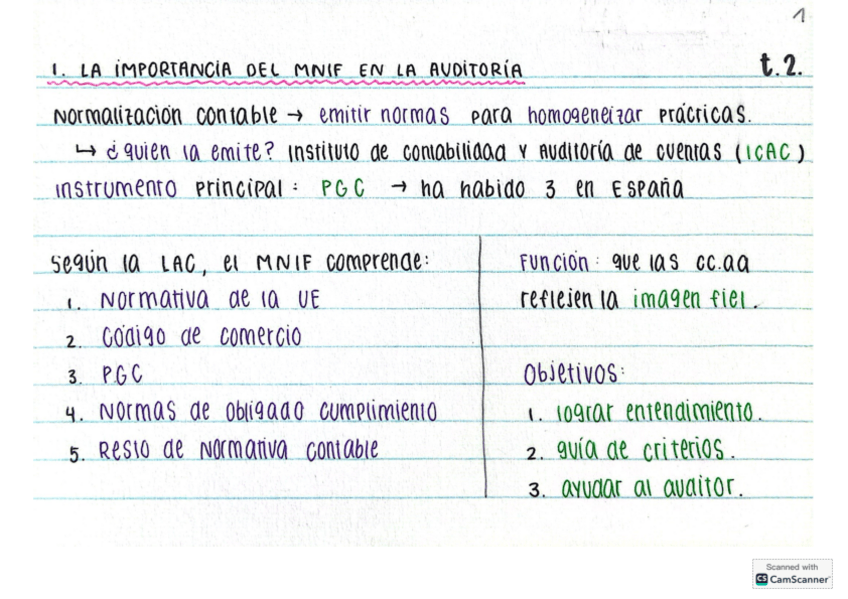 1
1. LA IMPORTANCIA DEL MNIF EN LA AUDITORÍA
t.2.
Normalización contable → emitir normas para homogeneizar prácticas.
↳ ¿quien la emite? Instituto de contabilidad y Auditoría de cuentas (ICAC)
Instrumento principal: PGC → ha habido 3 en España
Según la LAC, el MNIF comprende:
1. Normativa de la UE
2. Código de comercio
3. PGC
4. Normas de obligado cumplimiento
5. Resto de Normativa contable
Función: que las cc.aa
reflejen la imagen fiel.
Objetivos:
1. lograr entendimiento.
2. guía de criterios.
3. ayudar al auditor.
Scanned with
CS CamScanner